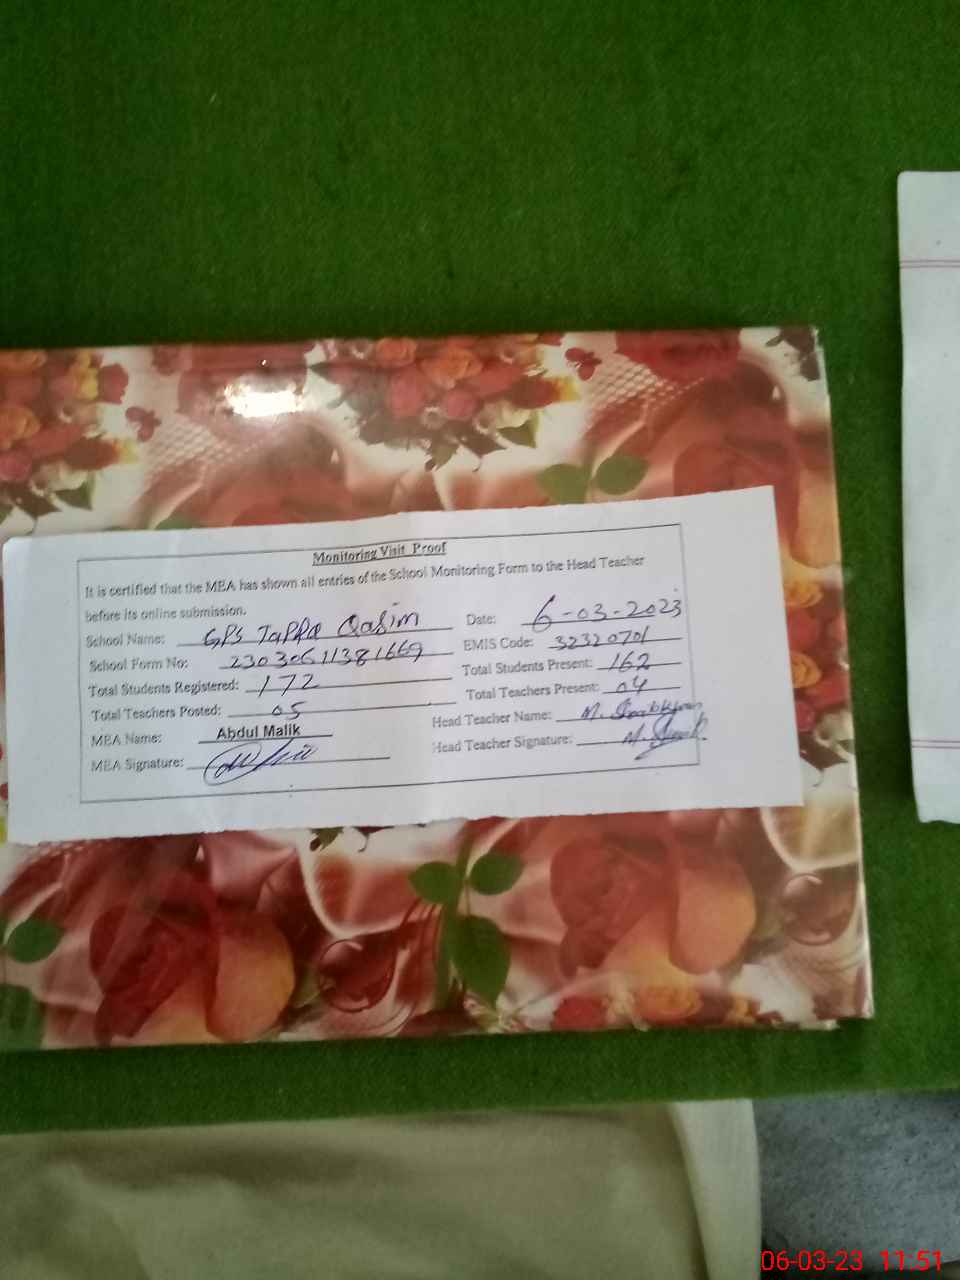 Monitoring Visit Proof
It is certified that the MEA has shown all entries of the School Monitoring Form to the Head Teacher
before its online submission.
School Name: GPS Tappa Qasim Date: 6-03-2023
School Form No: 23030611381669 EMIS Code: 32320701
Total Students Registered: 172 Total Students Present: 162
Total Teachers Posted: 05 Total Teachers Present: 04
MEA Name: Abdul Malik Head Teacher Name: M.
MEA Signature: Head Teacher Signature: M.
06-03-23 11:51